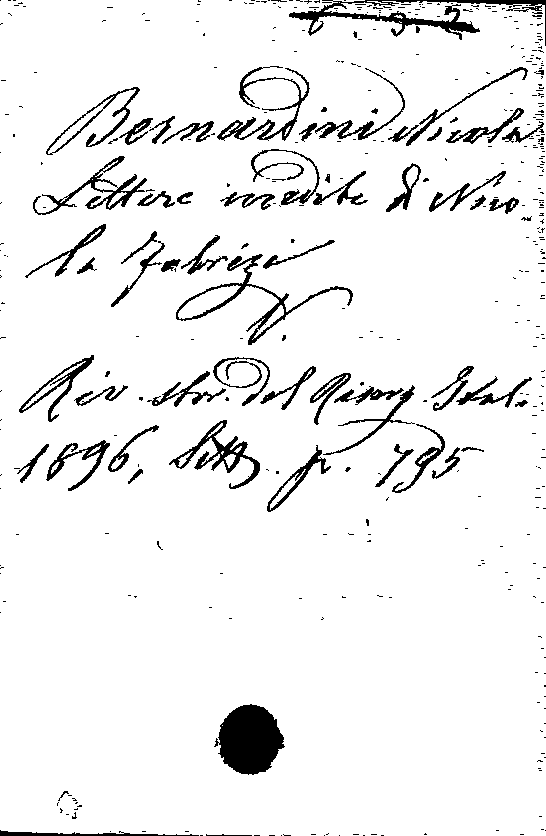 6.9.2
Bernardini Nicola
Lettere inedite di Nico
la Fabrizi
V.
Riv. stor. del Risorg. Ital.
1896, Sett. p. 795